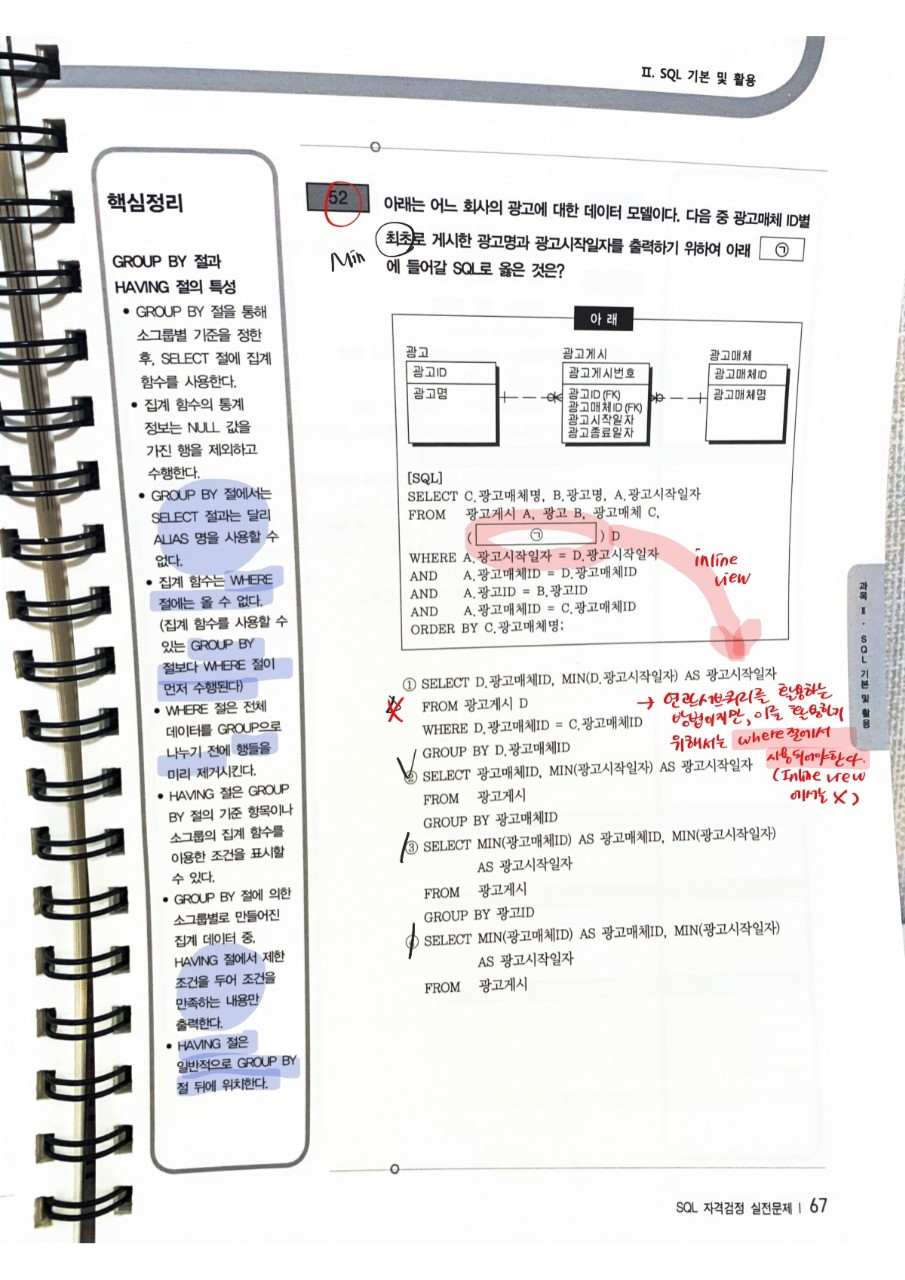 Ⅱ. SQL 기본 및 활용
핵심정리
GROUP BY 절과
HAVING 절의 특성
• GROUP BY 절을 통해
소그룹별 기준을 정한
후, SELECT 절에 집계
함수를 사용한다.
• 집계 함수의 통계
정보는 NULL 값을
가진 행을 제외하고
수행한다.
• GROUP BY 절에서는
SELECT 절과는 달리
ALIAS 명을 사용할 수
없다.
• 집계 함수는 WHERE
절에는 올 수 없다.
(집계 함수를 사용할 수
있는 GROUP BY
절보다 WHERE 절이
먼저 수행된다)
• WHERE 절은 전체
데이터를 GROUP으로
나누기 전에 행들을
미리 제거시킨다.
• HAVING 절은 GROUP
BY 절의 기준 항목이나
소그룹의 집계 함수를
이용한 조건을 표시할
수 있다.
• GROUP BY 절에 의한
소그룹별로 만들어진
집계 데이터 중,
HAVING 절에서 제한
조건을 두어 조건을
만족하는 내용만
출력한다.
• HAVING 절은
일반적으로 GROUP BY
절 뒤에 위치한다.
52
아래는 어느 회사의 광고에 대한 데이터 모델이다. 다음 중 광고매체 ID별
최초로 게시한 광고명과 광고시작일자를 출력하기 위하여 아래 ㉠
Min
에 들어갈 SQL로 옳은 것은?
아 래
광고 광고게시 광고매체
광고ID 광고게시번호 광고매체ID
광고명 광고ID (FK) 광고매체명
광고매체ID (FK)
광고시작일자
광고종료일자
[SQL]
SELECT C.광고매체명, B.광고명, A.광고시작일자
FROM 광고게시 A, 광고 B, 광고매체 C,
( ㉠ ) D
WHERE A.광고시작일자 = D.광고시작일자
AND A.광고매체ID = D.광고매체ID
AND A.광고ID = B.광고ID
AND A.광고매체ID = C.광고매체ID
ORDER BY C.광고매체명;
inline
view
① SELECT D.광고매체ID, MIN(D.광고시작일자) AS 광고시작일자
FROM 광고게시 D
WHERE D.광고매체ID = C.광고매체ID
GROUP BY D.광고매체ID
→ 연관서브쿼리를 활용하는
방법이지만, 이를 활용하기
위해서는 where절에서
사용되어야한다.
(Inline view
에서는 X)
② SELECT 광고매체ID, MIN(광고시작일자) AS 광고시작일자
FROM 광고게시
GROUP BY 광고매체ID
③ SELECT MIN(광고매체ID) AS 광고매체ID, MIN(광고시작일자)
AS 광고시작일자
FROM 광고게시
GROUP BY 광고ID
④ SELECT MIN(광고매체ID) AS 광고매체ID, MIN(광고시작일자)
AS 광고시작일자
FROM 광고게시
과목 Ⅱ · SQL 기본 및 활용
SQL 자격검정 실전문제 | 67